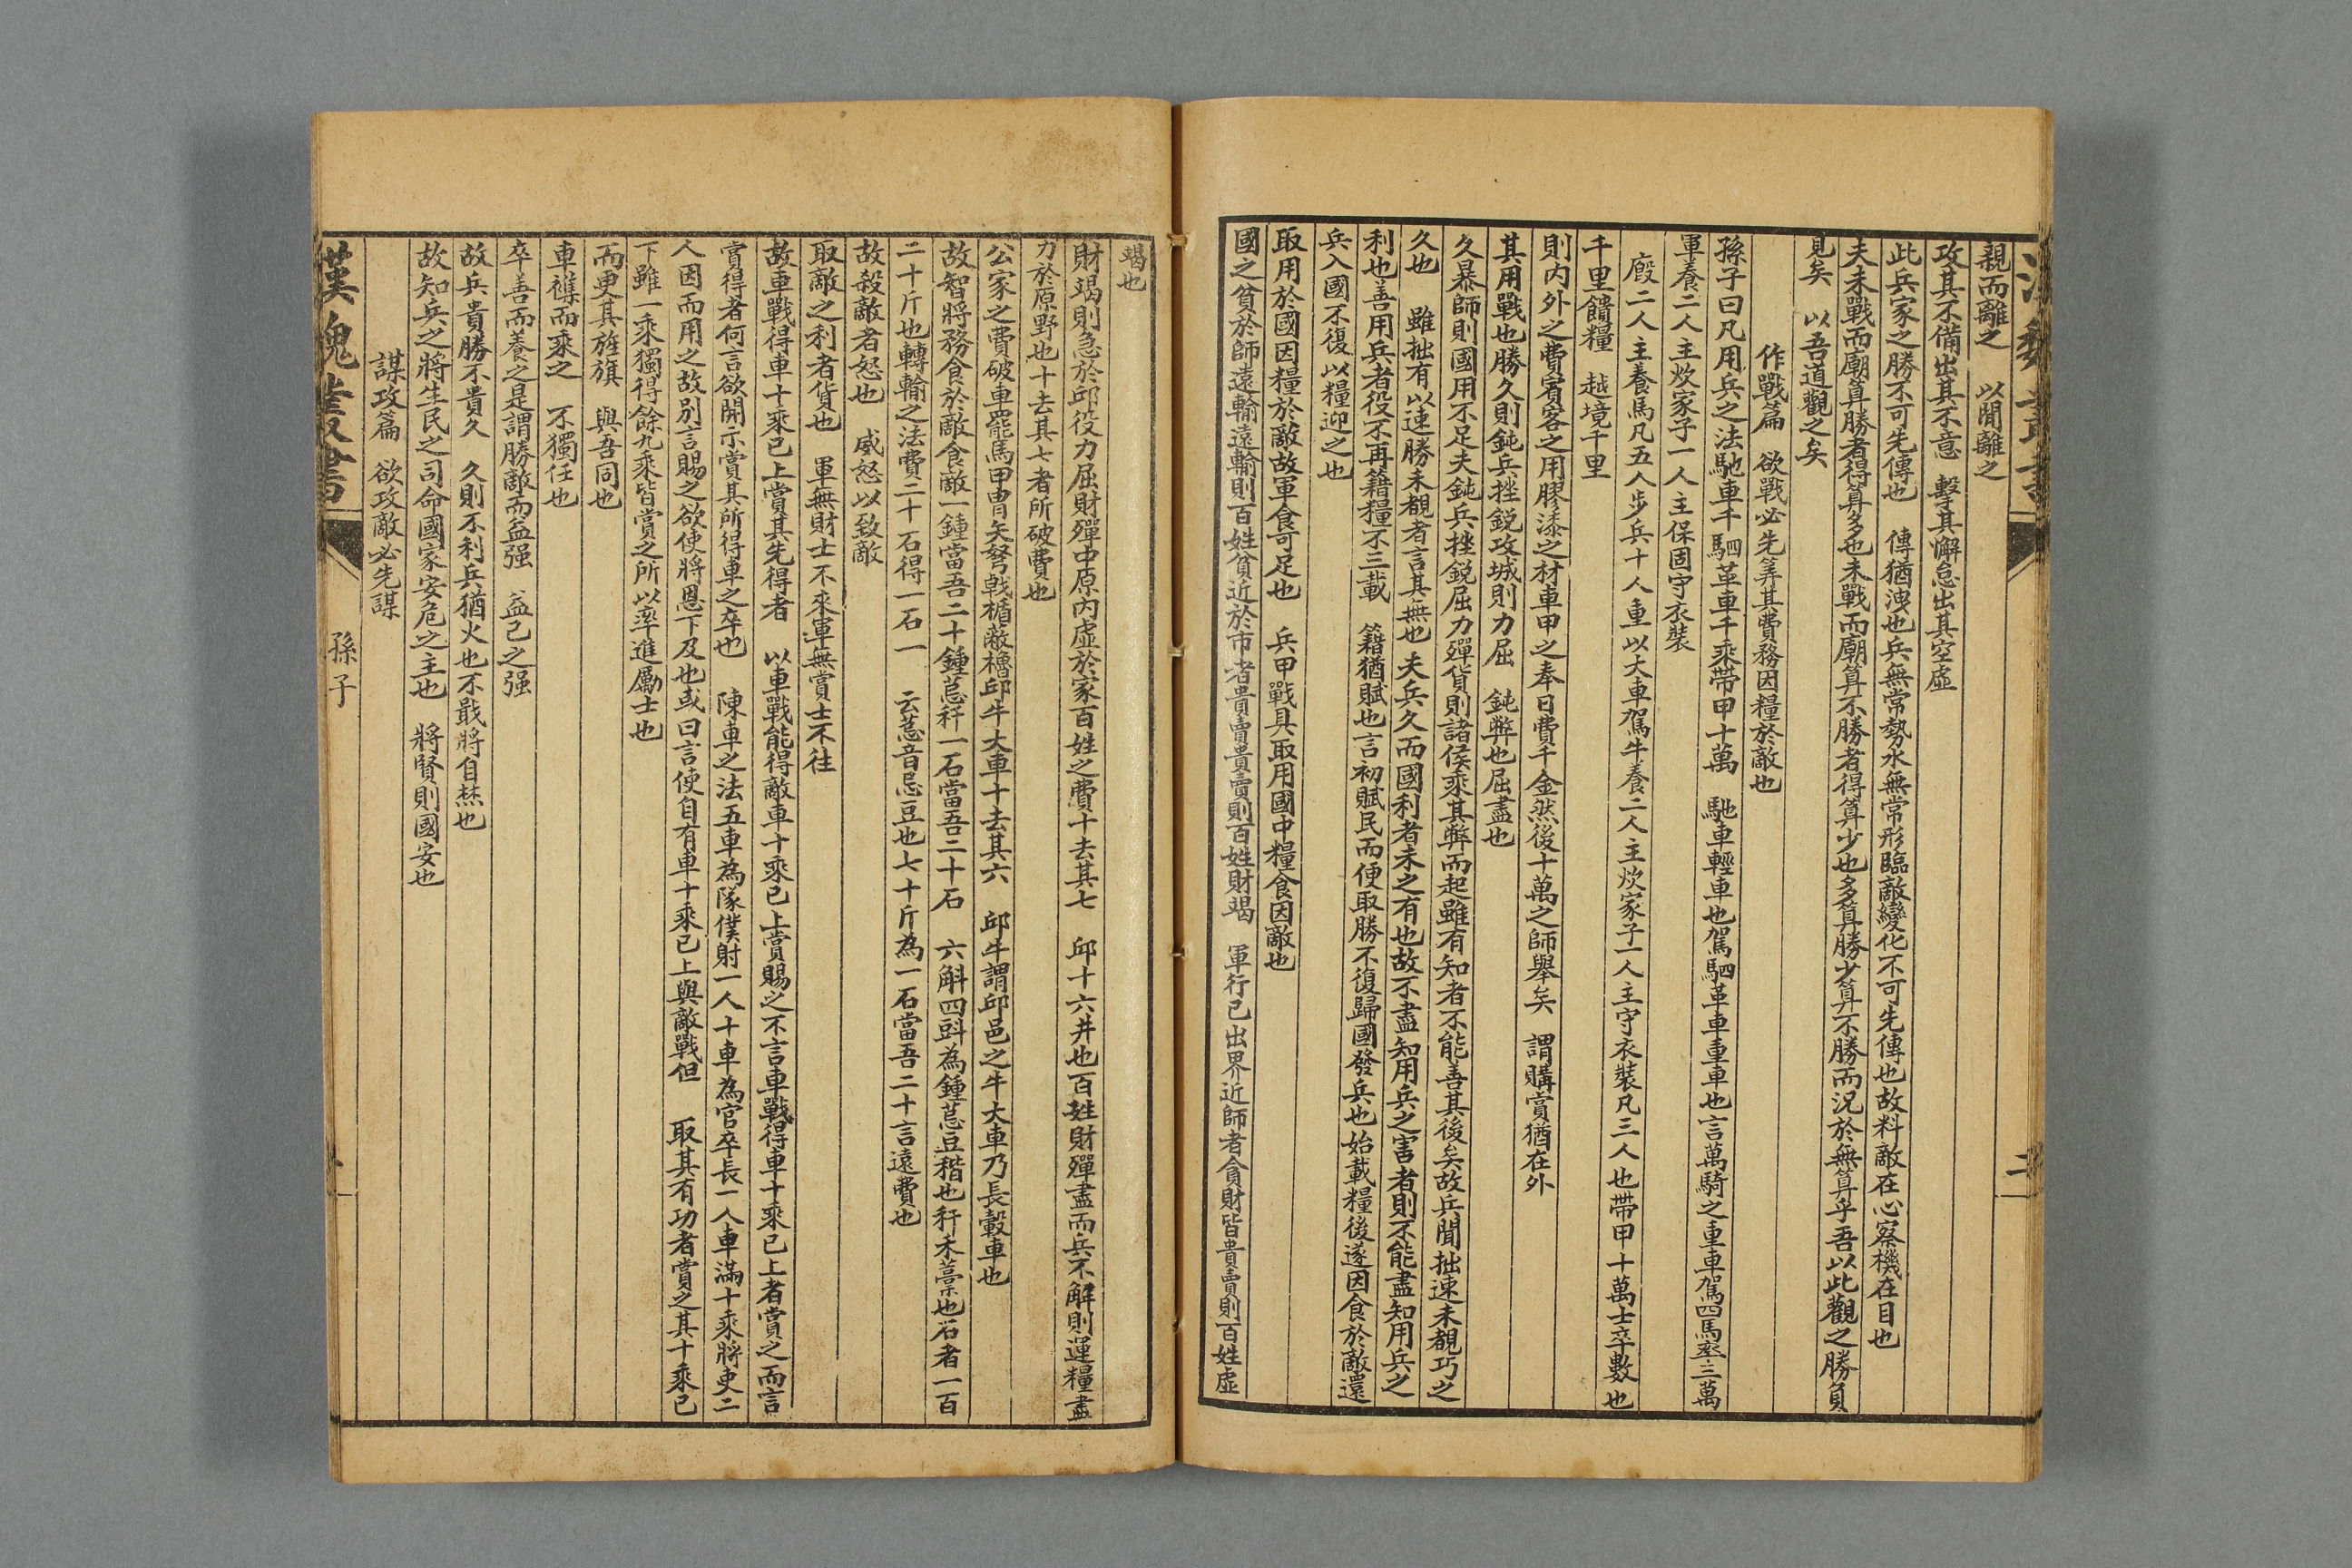 親而離之　以間離之
攻其不備出其不意　擊其懈怠出其空虛
此兵家之勝不可先傳也　傳猶洩也兵無常勢水無常形臨敵變化不可先傳也故料敵在心察機在目也
夫未戰而廟算勝者得算多也未戰而廟算不勝者得算少也多算勝少算不勝而況於無算乎吾以此觀之勝負
見矣　以吾道觀之矣
作戰篇　欲戰必先算其費務因糧於敵也
孫子曰凡用兵之法馳車千駟革車千乘帶甲十萬　馳車輕車也駕駟革車重車也言萬騎之重車駕四馬率三萬
軍養二人主炊家子一人主保固守衣裝
廄二人主養馬凡五人步兵十人重以大車駕牛養二人主炊家子一人主守衣裝凡三人也帶甲十萬士卒數也
千里饋糧　越境千里
則內外之費賓客之用膠漆之材車甲之奉日費千金然後十萬之師舉矣　謂購賞猶在外
其用戰也勝久則鈍兵挫銳攻城則力屈　鈍弊也屈盡也
久暴師則國用不足夫鈍兵挫銳屈力殫貨則諸侯乘其弊而起雖有知者不能善其後矣故兵聞拙速未覩巧之
久也　雖拙有以速勝未覩者言其無也　夫兵久而國利者未之有也故不盡知用兵之害者則不能盡知用兵之
利也善用兵者役不再籍糧不三載　籍猶賦也言初賦民而便取勝不復歸國發兵也始載糧後遂因食於敵還
兵入國不復以糧迎之也
取用於國因糧於敵故軍食可足也　兵甲戰具取用國中糧食因敵也
國之貧於師遠輸遠輸則百姓貧近於市者貴賣貴賣則百姓財竭　軍行已出界近師者貪財皆貴賣則百姓虛
竭也
財竭則急於邱役力屈財殫中原內虛於家百姓之費十去其七　邱十六井也百姓財殫盡而兵不解則運糧盡
力於原野也十去其七者所破費也
公家之費破車罷馬甲冑矢弩戟楯蔽櫓邱牛大車十去其六　邱牛謂邱邑之牛大車乃長轂車也
故智將務食於敵食敵一鍾當吾二十鍾萁秆一石當吾二十石　六斛四㪷為鍾萁豆稭也秆禾藁也石者一百
二十斤也轉輸之法費二十石得一石一　云萁音忌豆也七十斤為一石當吾二十言遠費也
故殺敵者怒也　威怒以致敵
取敵之利者貨也　軍無財士不來軍無賞士不往
故車戰得車十乘已上賞其先得者　以車戰能得敵車十乘已上賞賜之不言車戰得車十乘已上者賞之而言
賞得者何言欲開示賞其所得車之卒也　陳車之法五車為隊僕射一人十車為官卒長一人車滿十乘將吏二
人因而用之故別言賜之欲使將恩下及也或曰言使自有車十乘已上與敵戰但　取其有功者賞之其十乘已
下雖一乘獨得餘九乘皆賞之所以率進勵士也
而更其旌旗　與吾同也
車襍而乘之　不獨任也
卒善而養之是謂勝敵而益强　益己之强
故兵貴勝不貴久　久則不利兵猶火也不戢將自焚也
故知兵之將生民之司命國家安危之主也　將賢則國安也
謀攻篇　欲攻敵必先謀
漢魏叢書　孫子